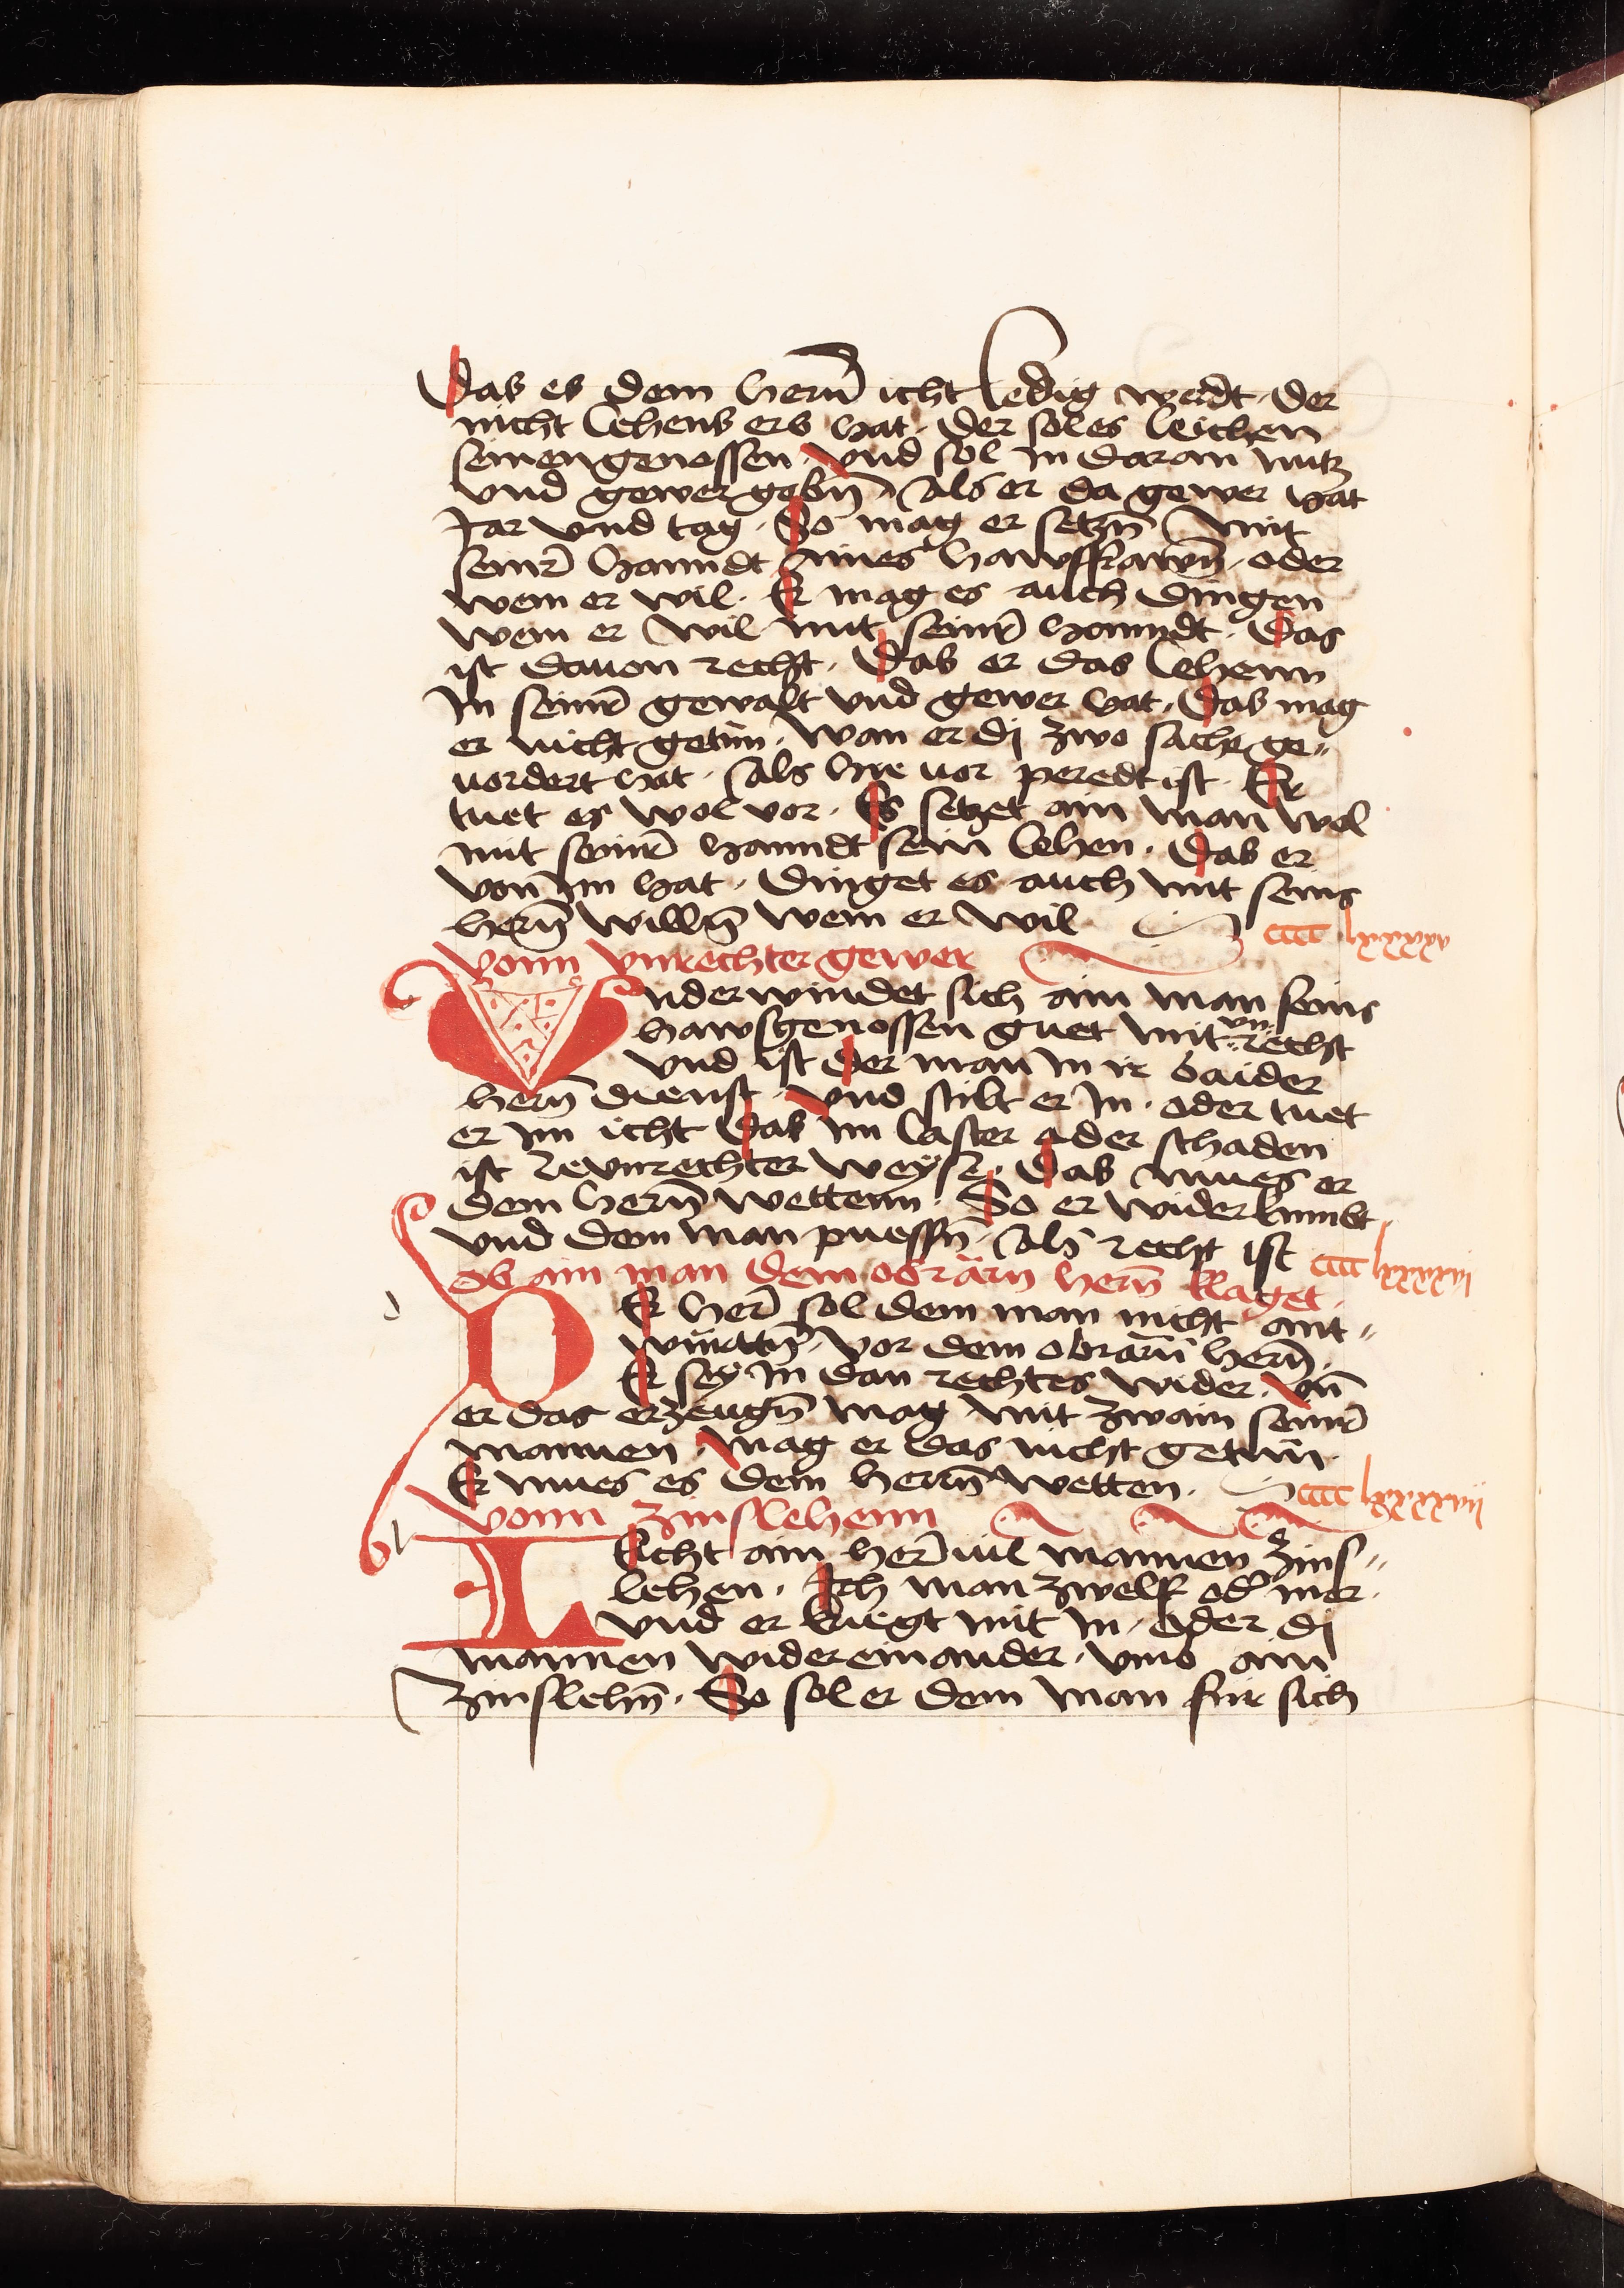 Das es dem herñ icht ledig werdt · der
nicht lehens erb hat · der sol es leichen
seinen genossen · vnd sol in daran nutz
vnd gewer gebñ · als er da gewer hat
Jar vnd tag · So mag er setzñ mit
seinr̄ hanndt seines hawsfrawñ · oder
wem er wil · Er mag es auch dingen
wem er wil mit seinr̄ hanndt · Das
ist dauon recht · Das er das lehenn
In seinr̄ gewalt vnd gewer hat · Das mag
er nicht getün · wan er dj zwo sache ge〃
uordert hat · als hie uor geredt ist · Er
tuet es wol vor · Es setzet ain man wol
mit seinr̄ hanndt sein lehen · Das er
von im hat · dinget es auch mit seins
herñ willñ wem er wil
cccc lxxxxv
Vonn vnrechter gewer
Vnderwindet sich ain man seins
hawsgenossen guet mit vn〃recht
vnd ist der man in ir baider
herñ dienst · vnd stilt er in · oder tuet
er im icht das im laster oder schaden
ist ze vnrechter weys · Das mues er
dem herñ wettenn · So er widerkumbt
vnd dem man puessñ · als recht ist
cccc lxxxxvi
Ob ain man dem obrärn herñ klaget ·
DEr her̄ sol dem man nicht ant〃
wurttñ vor dem obrarñ herñ ·
Er sey in dan rechtes wider · vñ
er das erzeugñ mag mit zwain seinr̄
mannen · mag er das nicht getün
Er mues es dem herrñ wetten ·
cccc lxxxxvii
Vonn zinslehenn
LEicht ain her̄ uil mannen zins〃
lehen · Ich man zwelf od' mer ·
vnd er kriegt mit in · oder dj
mannen widereinander · vmb ain
zinslehñ · So sol er dem man für sich